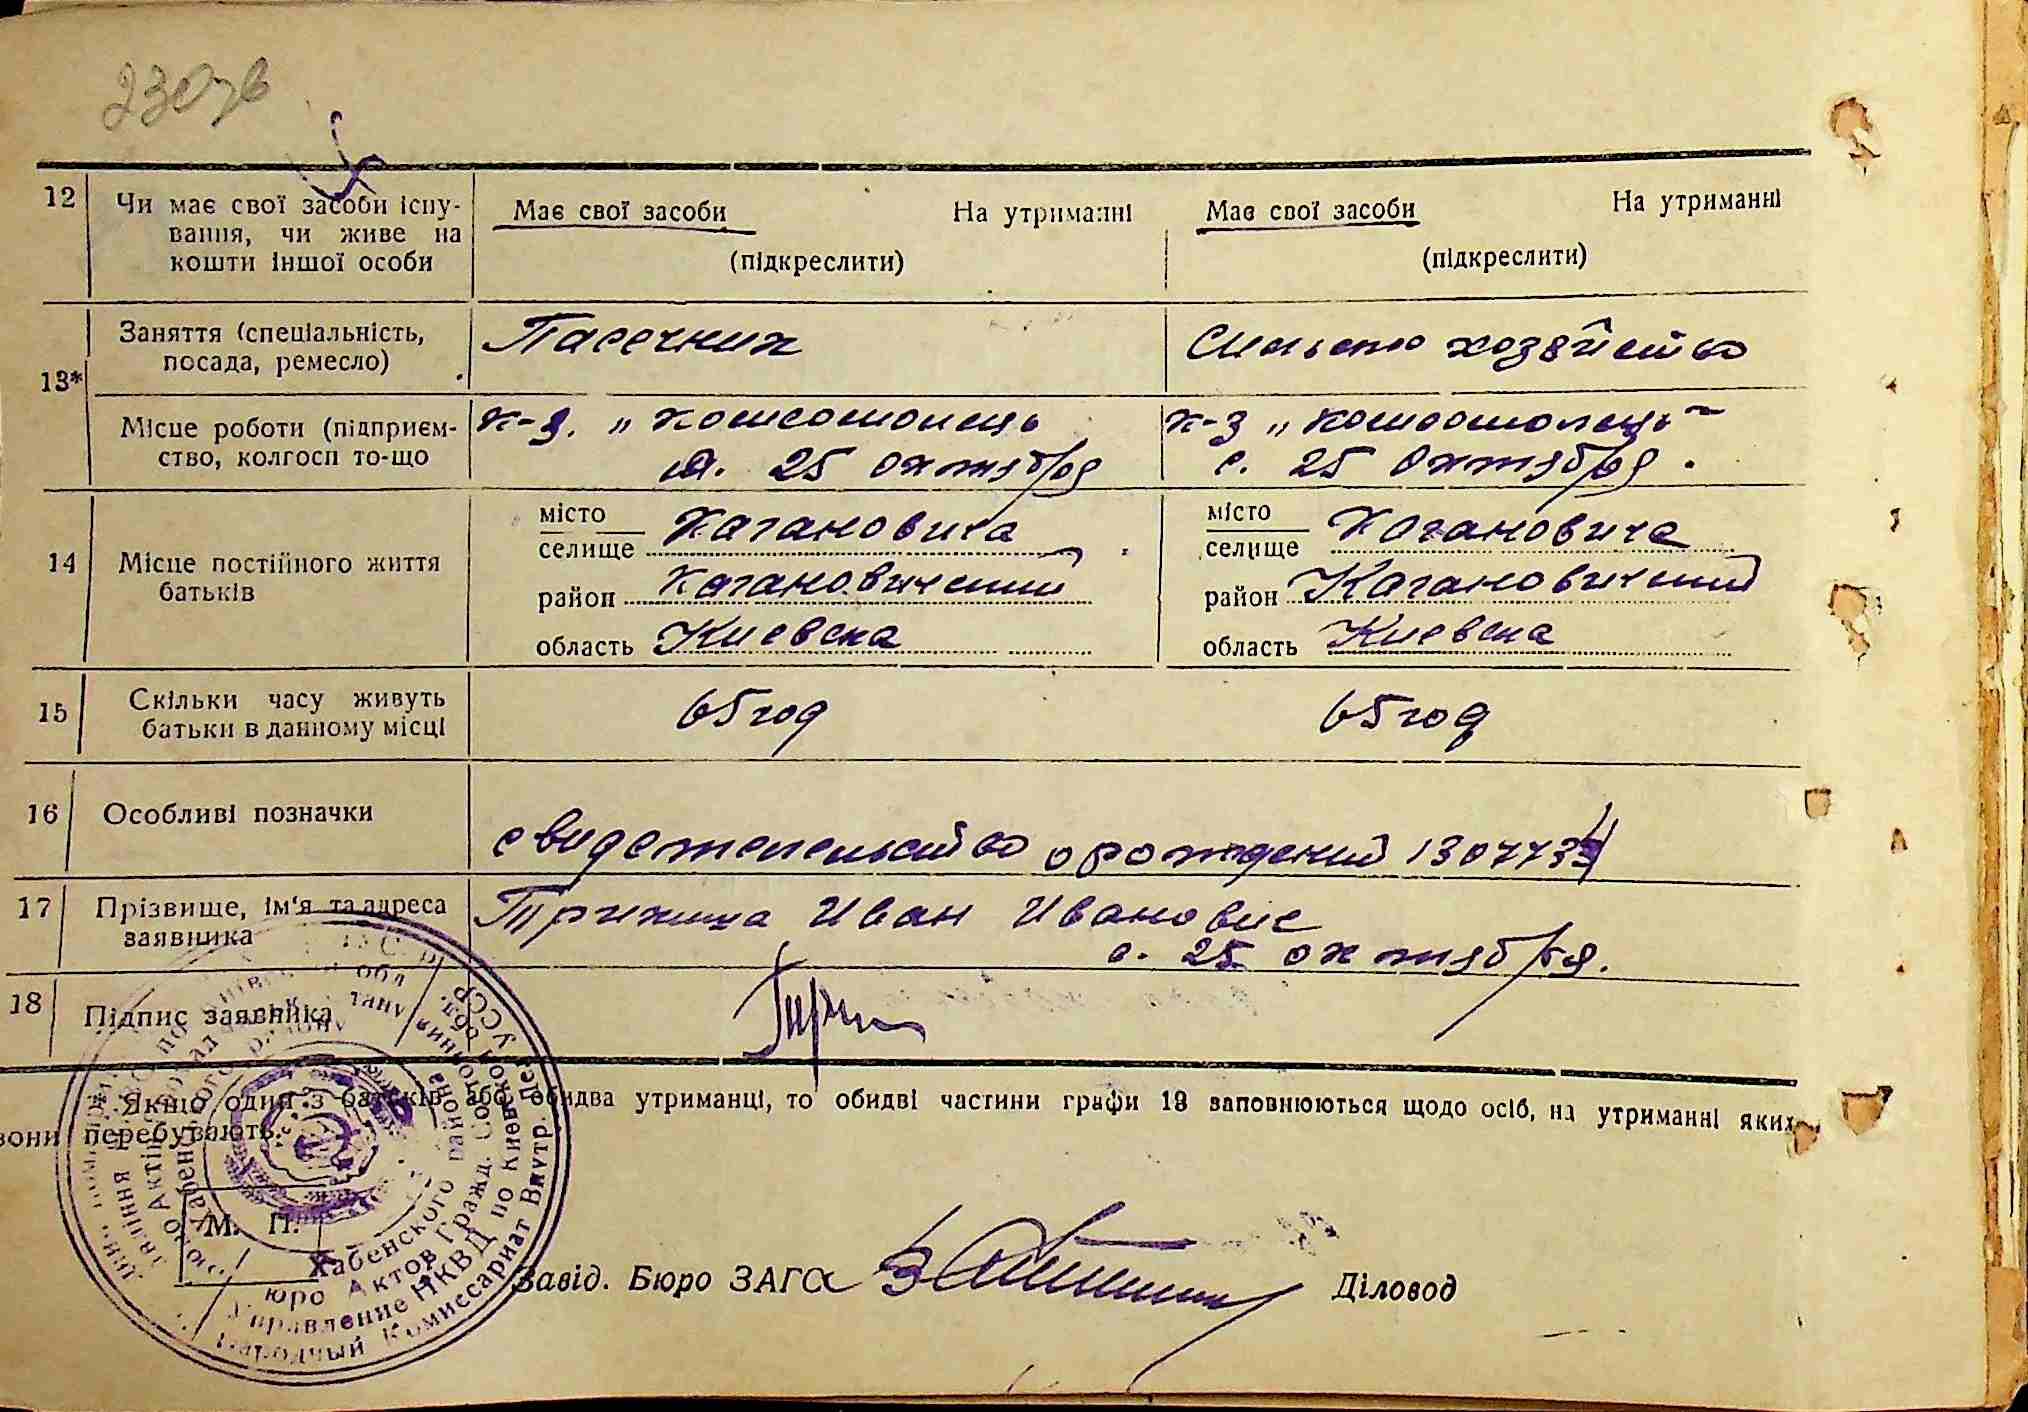 12 Чи має свої засоби існу-
вання, чи живе на
кошти іншої особи
Має свої засоби На утриманні
(підкреслити)
Має свої засоби На утриманні
(підкреслити)
13*
Заняття (спеціальність,
посада, ремесло)
Пасечник
Сильско хозяйство
Місце роботи (підприєм-
ство, колгосп то-що
к-з. „Комсомолець
с. 25 Октября
к-з „Комсомолець"
с. 25 Октября.
14 Місце постійного життя
батьків
місто
селище Кагановича
район Кагановичский
область Киевска
місто
селище Кагановича
район Кагановичский
область Киевска
15 Скільки часу живуть
батьки в данному місці
65 год
65 год
16 Особливі позначки
свидетельство о рождений
17 Прізвище, ім'я та адреса
заявника
Иван Иванович
с. 25 октября.
18 Підпис заявника
* Якщо один з батьків або обидва утриманці, то обидві частини графи 13 заповнюються щодо осіб, на утриманні яких
вони перебувають.
М. П.
Хабенского района
Бюро Актов Гражд. Состояния
Управление НКВД по Киевской обл.
Народный Комиссариат Внутр. Дел УССР
Завід. Бюро ЗАГС Діловод